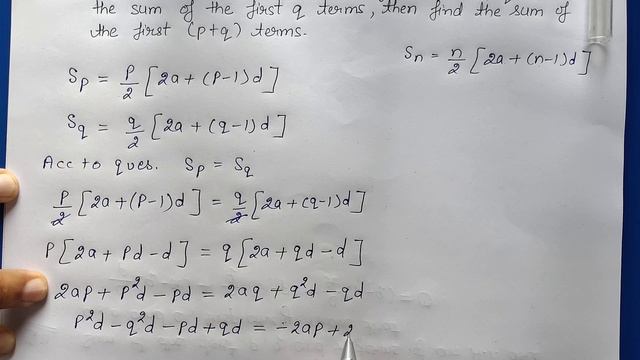 the sum of the first q terms, then find the sum of
the first (p+q) terms.
Sn = n/2 [2a + (n-1)d]
Sp = p/2 [2a + (p-1)d]
Sq = q/2 [2a + (q-1)d]
Acc to ques. Sp = Sq
p/2 [2a + (p-1)d] = q/2 [2a + (q-1)d]
p[2a + pd - d] = q[2a + qd - d]
2ap + p²d - pd = 2aq + q²d - qd
p²d - q²d - pd + qd = -2ap + 2